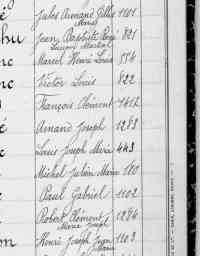 Jules Armand Gilles 1101
Marie
hu Jean Baptiste René 821
nc Marcel Henri Louis 574
nc Victor Louis 822
François Clément 1412
é Armand Joseph 1283
Louis Joseph Marie 443
Michel Julien Marie 180
e Paul Gabriel 1102
Robert Clément 1284
Marie Joseph
on Henri Joseph Jean 1103